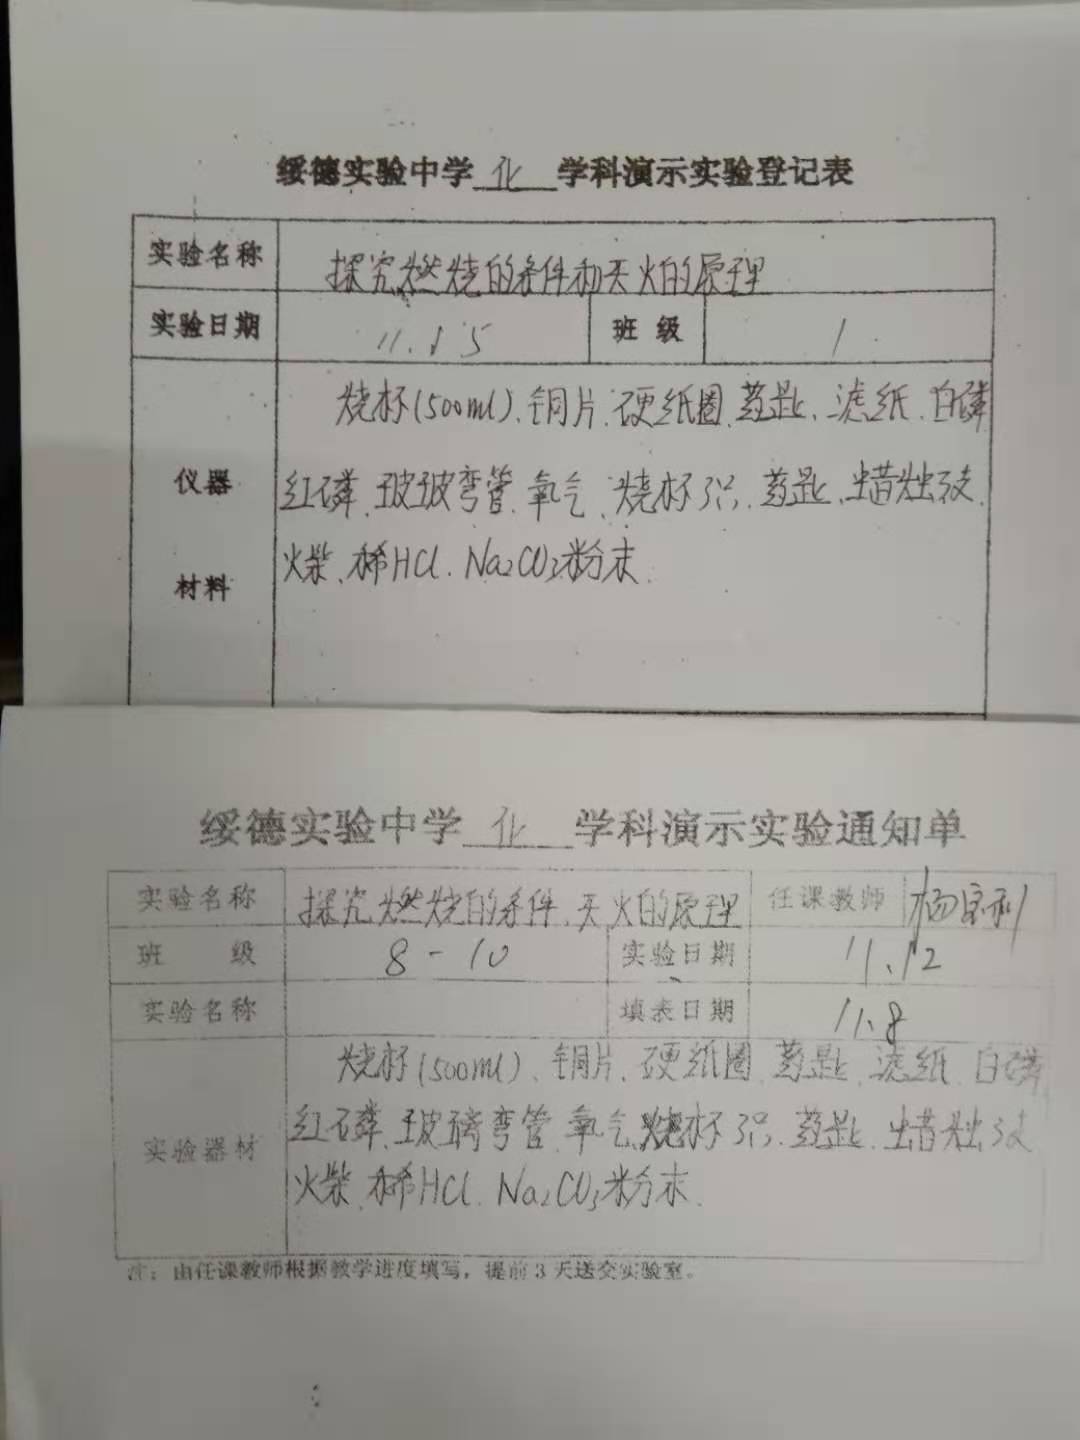 绥德实验中学 化 学科演示实验登记表
实验名称 探究燃烧的条件和灭火的原理
实验日期 11.15 班 级 1
烧杯(500ml)、铜片、硬纸圈、药匙、滤纸、白磷
仪器 红磷、玻玻弯管、氧气、烧杯3只、药匙、蜡烛3支、
材料 火柴、稀HCl、Na2CO3粉末.
绥德实验中学 化 学科演示实验通知单
实验名称 探究燃烧的条件、灭火的原理 任课教师
班 级 8-10 实验日期 11.12
实验名称 填表日期 11.8
烧杯(500ml)、铜片、硬纸圈、药匙、滤纸、白磷
实验器材 红磷、玻璃弯管、氧气、烧杯3只、药匙、蜡烛3支
火柴、稀HCl、Na2CO3粉末.
注：由任课教师根据教学进度填写，提前3天送交实验室。